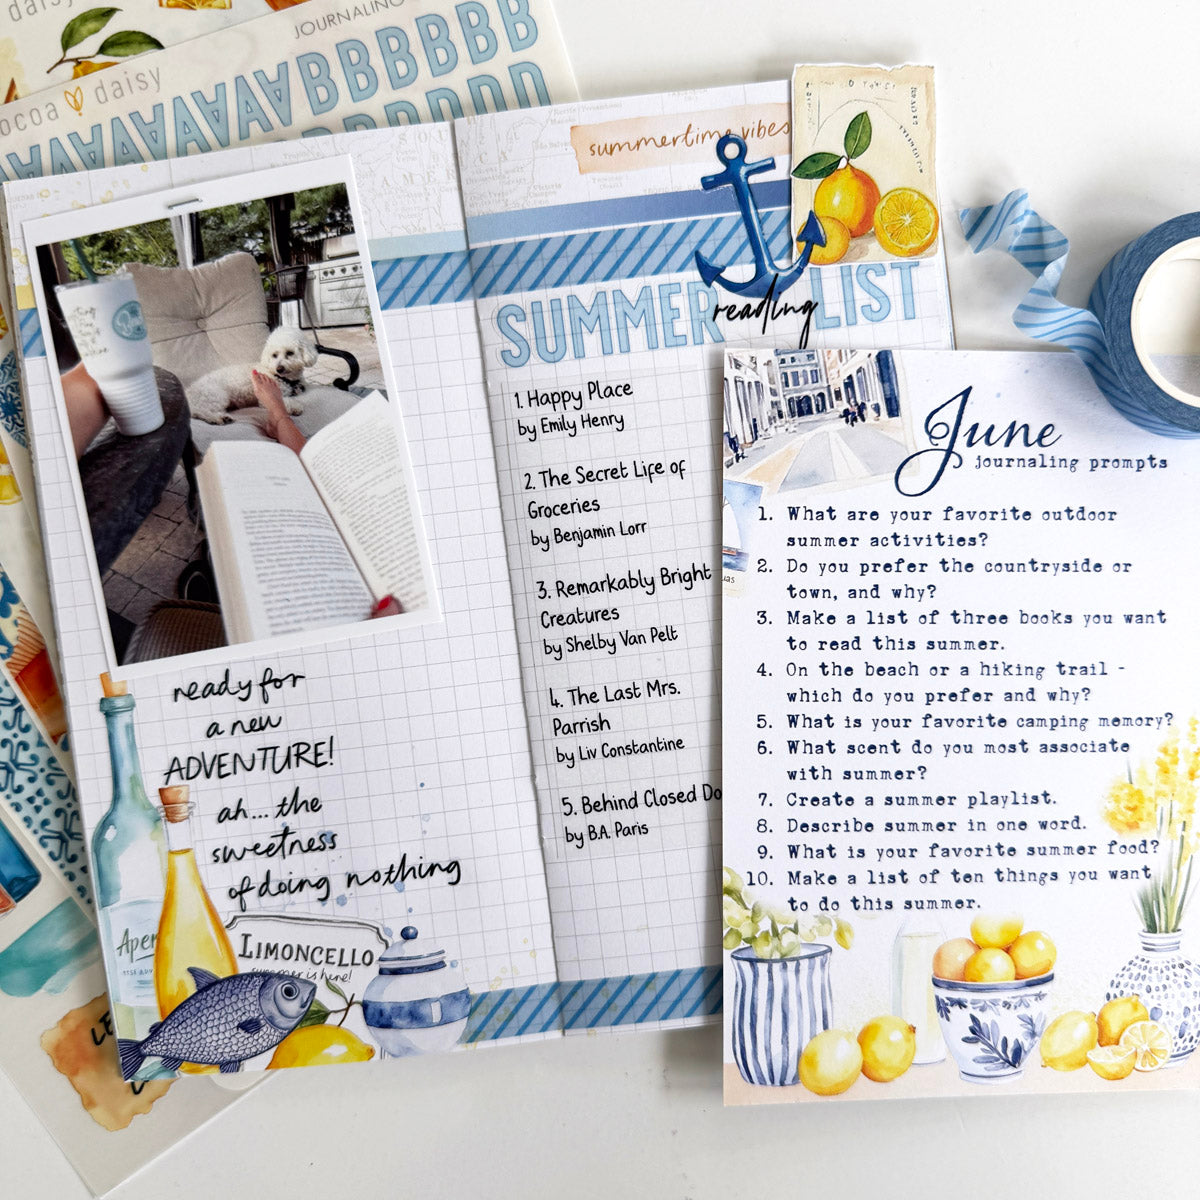 daisy
JOURNALING
cocoa daisy
AAAAAAABBBBBB
summertime vibes
SUMMER LIST
reading
1. Happy Place
by Emily Henry
2. The Secret Life of
Groceries
by Benjamin Lorr
3. Remarkably Bright
Creatures
by Shelby Van Pelt
4. The Last Mrs.
Parrish
by Liv Constantine
5. Behind Closed Do
by B.A. Paris
ready for
a new
ADVENTURE!
ah... the
sweetness
of doing nothing
Aper
LIMONCELLO
summer is here!
June
journaling prompts
1. What are your favorite outdoor
summer activities?
2. Do you prefer the countryside or
town, and why?
3. Make a list of three books you want
to read this summer.
4. On the beach or a hiking trail -
which do you prefer and why?
5. What is your favorite camping memory?
6. What scent do you most associate
with summer?
7. Create a summer playlist.
8. Describe summer in one word.
9. What is your favorite summer food?
10. Make a list of ten things you want
to do this summer.